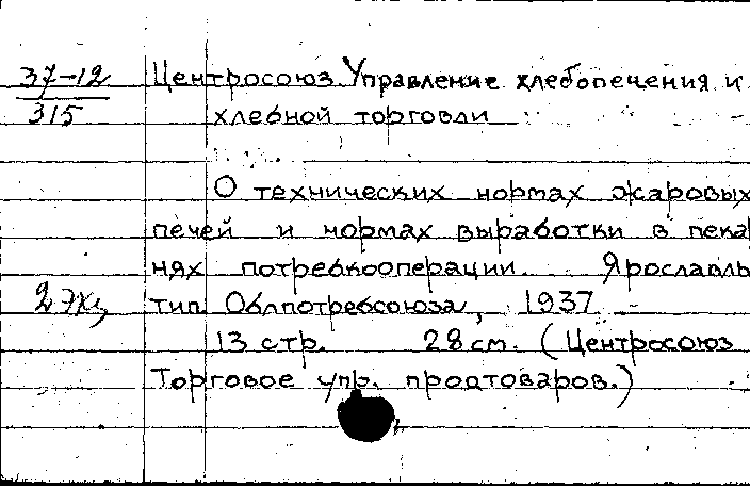 37-12 Центросоюз Управление хлебопечения и
315 хлебной торговли
О технических нормах жаровых
печей и нормах выработки в пека
нях потребкооперации Ярославль
2 экз, тип. Облпотребсоюза, 1937
13 стр. 28 см. (Центросоюз
Торговое упр. продтоваров.)